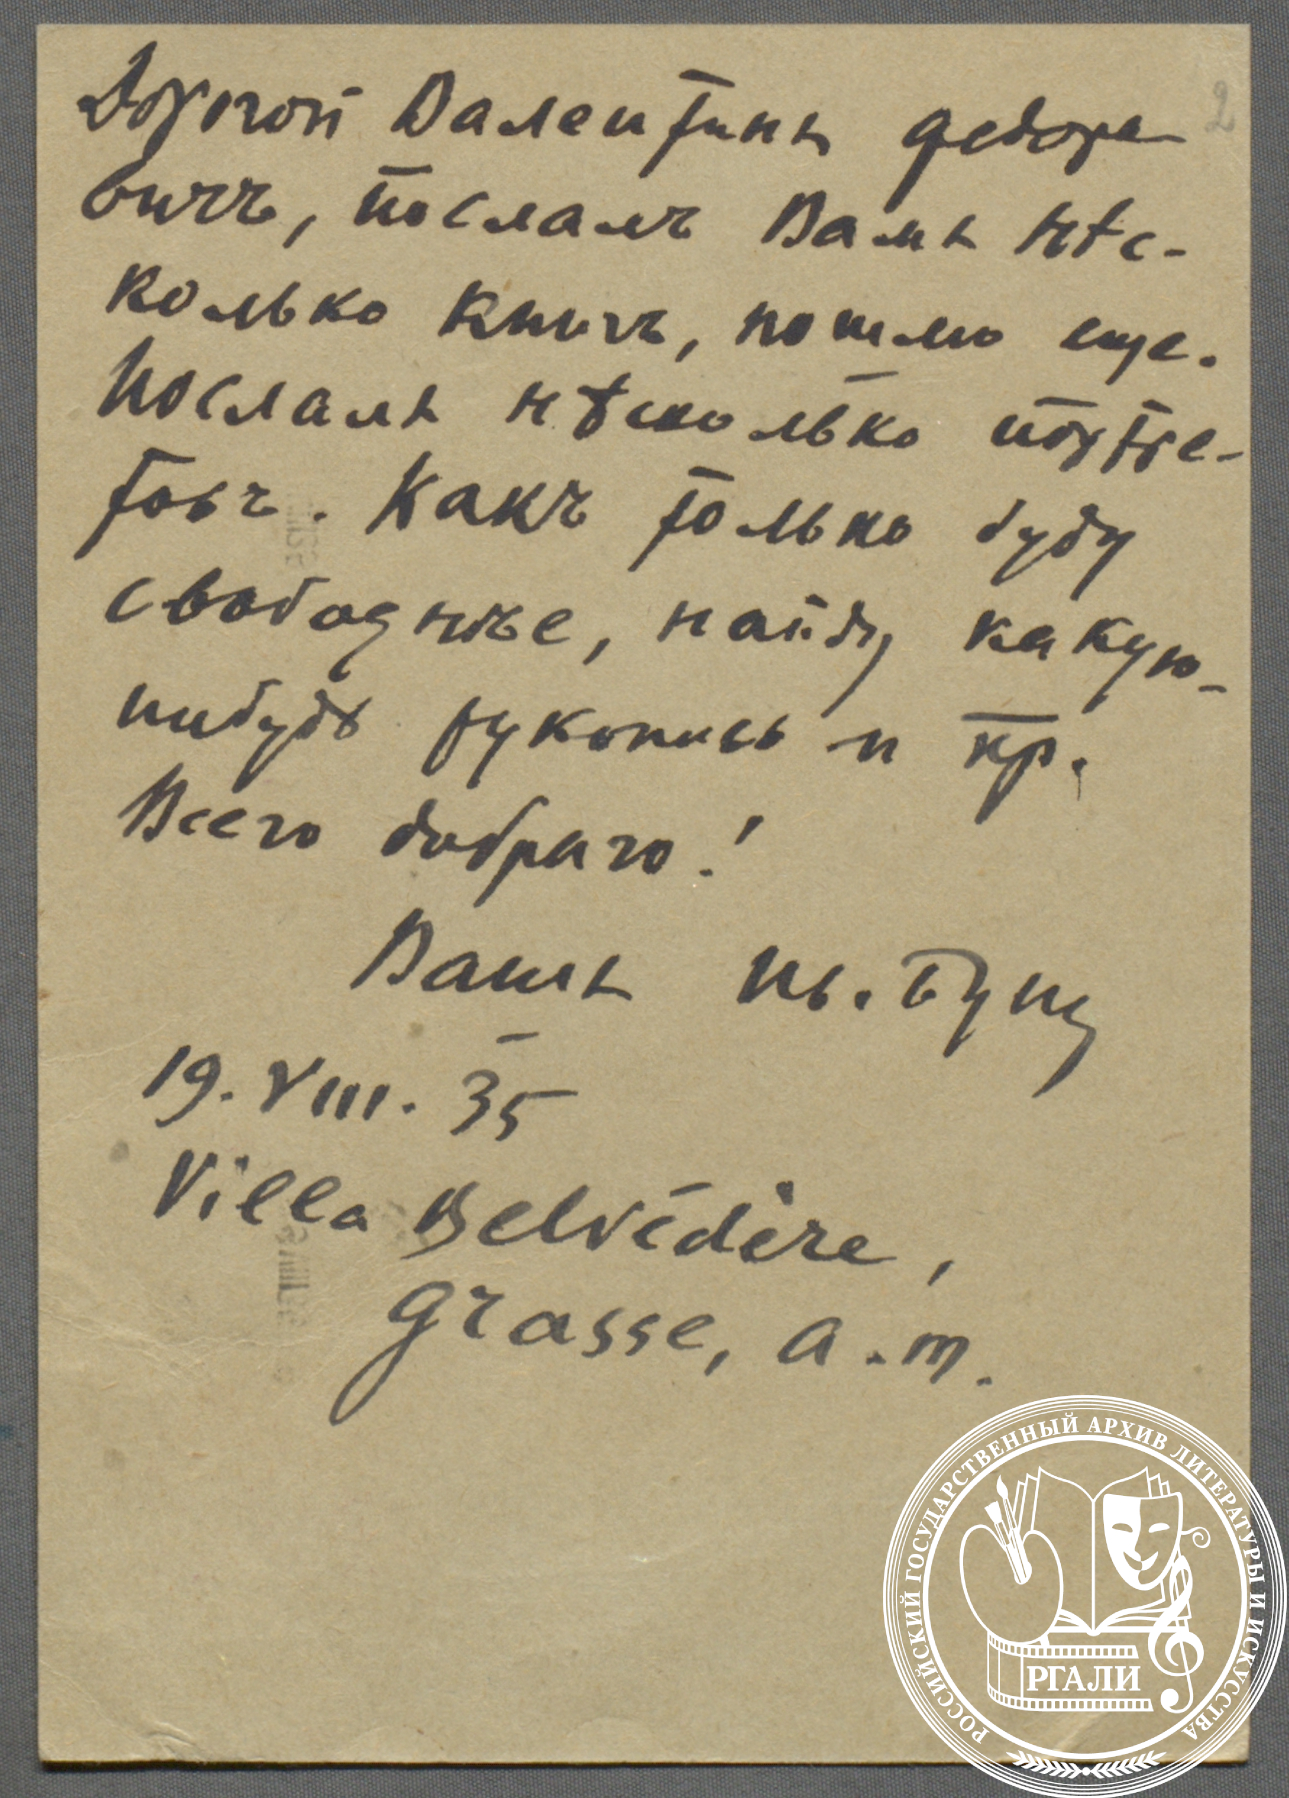 2
Дорогой Валентинъ Федоро
вичъ, послалъ Вамъ нѣс-
колько книгъ, пошлю еще.
Послалъ нѣсколько портре-
товъ. Какъ только буду
свободнѣе, найду какую-
нибудь рукопись и пр.
Всего добраго!
Вашъ Ив. Бунин
19.VIII.35
Villa Belvédère,
Grasse, a.m.
РОССИЙСКИЙ ГОСУДАРСТВЕННЫЙ АРХИВ ЛИТЕРАТУРЫ И ИСКУССТВА
РГАЛИ